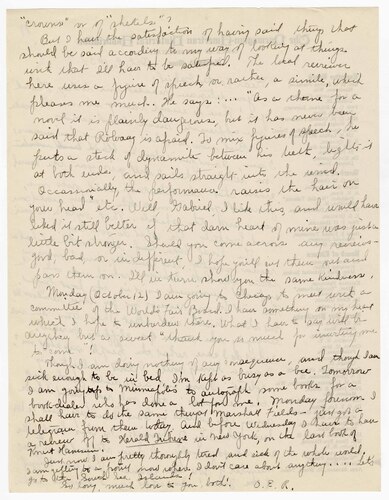 "crowns" or of "shekels"?
But I have the satisfaction of having said things that
should be said according to my way of looking at things.
with that I'll have to be satisfied. The local reviewer
here uses a figure of speech, or rather, a simile, which
pleases me much. He says:... "As a theme for a
novel it is plainly dangerous, but it has never been
said that Rolvaag is afraid. To mix figures of speech, he
puts a stick of dynamite between his teeth, lights it
at both ends, and sails straight into the wind.
Occasionally the performance raises the hair on
your head" etc. Well Gabriel I like this, and would have
liked it still better if that darn heart of mine was just a
little bit stronger. Should you come across any reviews
good, bad, or indifferent I hope you'll cut them out and
pass them on. I'll in turn show you the same kindness.
Monday (October 12) I am going to Chicago to meet with a
committee of the Worlds Fair Board. I have something on my heart
which I hope to unburden there. What I have to say will be
anything but a sweet "thank you so much for inviting me
to come"!
Though I am doing nothing of any consequence, and though I am
sick enough to be in bed I'm kept as busy as a bee. Tomorrow
I am going up to Minneapolis to autograph some books for a
book-dealer who has done a lot for me. Monday forenoon I
shall have to do the same thing at Marshall Fields – just got a
telegram from them today and before Wednesday I have to have
a review off to Herald Tribune in New York, on the last book of
Knut Hamsun.
Just now I am pretty thoroughly tired and sick of the whole world,
I don't care about anything.... Let's
go to the South Sea Islands!
So long, much love to you both! O. E. R.